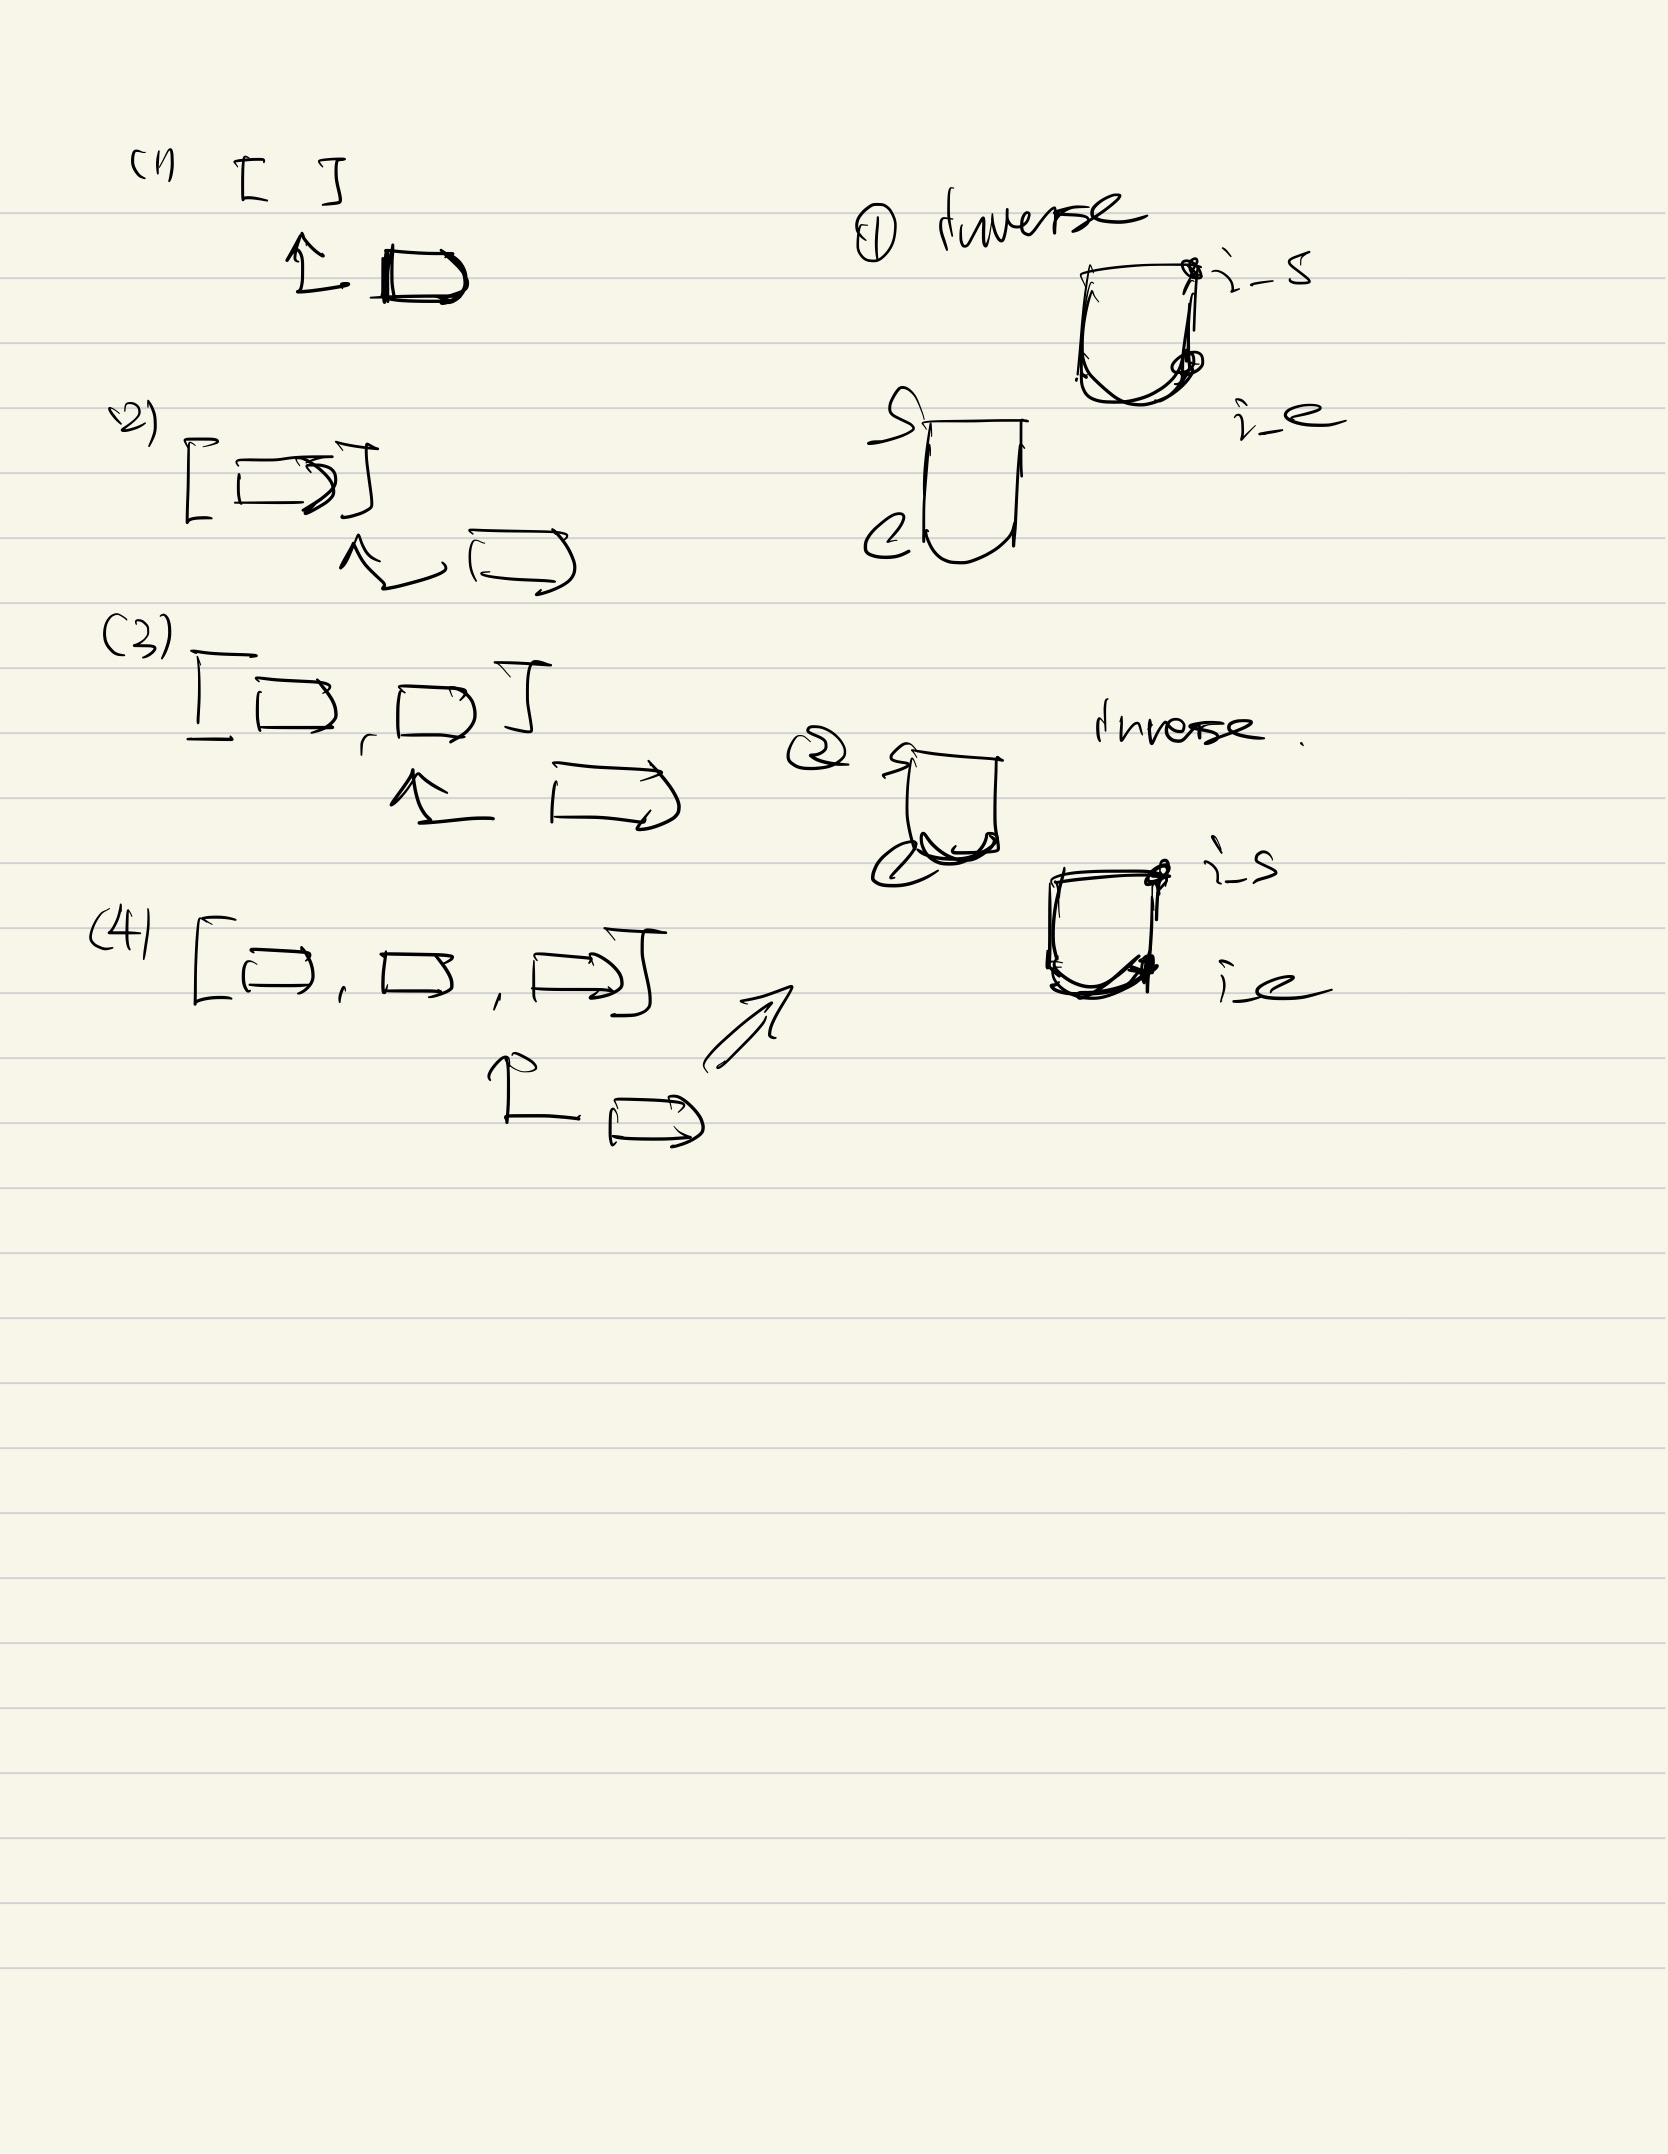 (1) [ ]
(2) [ ]
(3) [ , ]
(4) [ , , ]
① Inverse
i_s
i_e
S
e
② Inverse.
S
e
i_s
i_e